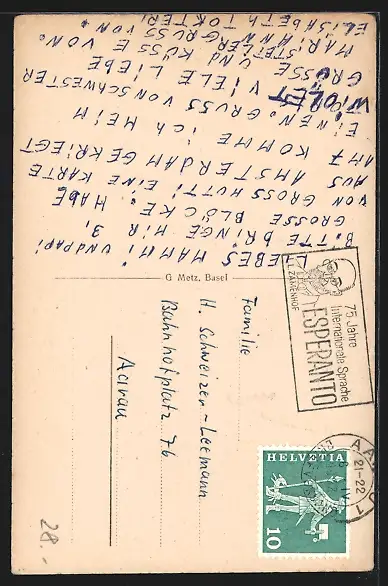 LIEBES MAMMI UND PAPI
BITTE BRINGE MIR 3,
GROSSE BLÖCKE. HABE
VON GROSSMUTTI EINE KARTE
AUS AMSTERDAM GEKRIEGT
AM 7 KOMME ich HEIM
EINEN. GRUSS VON SCHWESTER
VIOLET VIELE LIEBE
GRÜSSE UND KÜSSE VON.
MARISTELLER GRUSS VON
ELISABETH
G Metz, Basel
Familie
H. Schweizer-Leemann
Bahnhofplatz 76
Aarau
75 Jahre
Internationale Sprache
ESPERANTO
L.L. ZAMENHOF
AARAU 1
21-22
HELVETIA
10
28.-